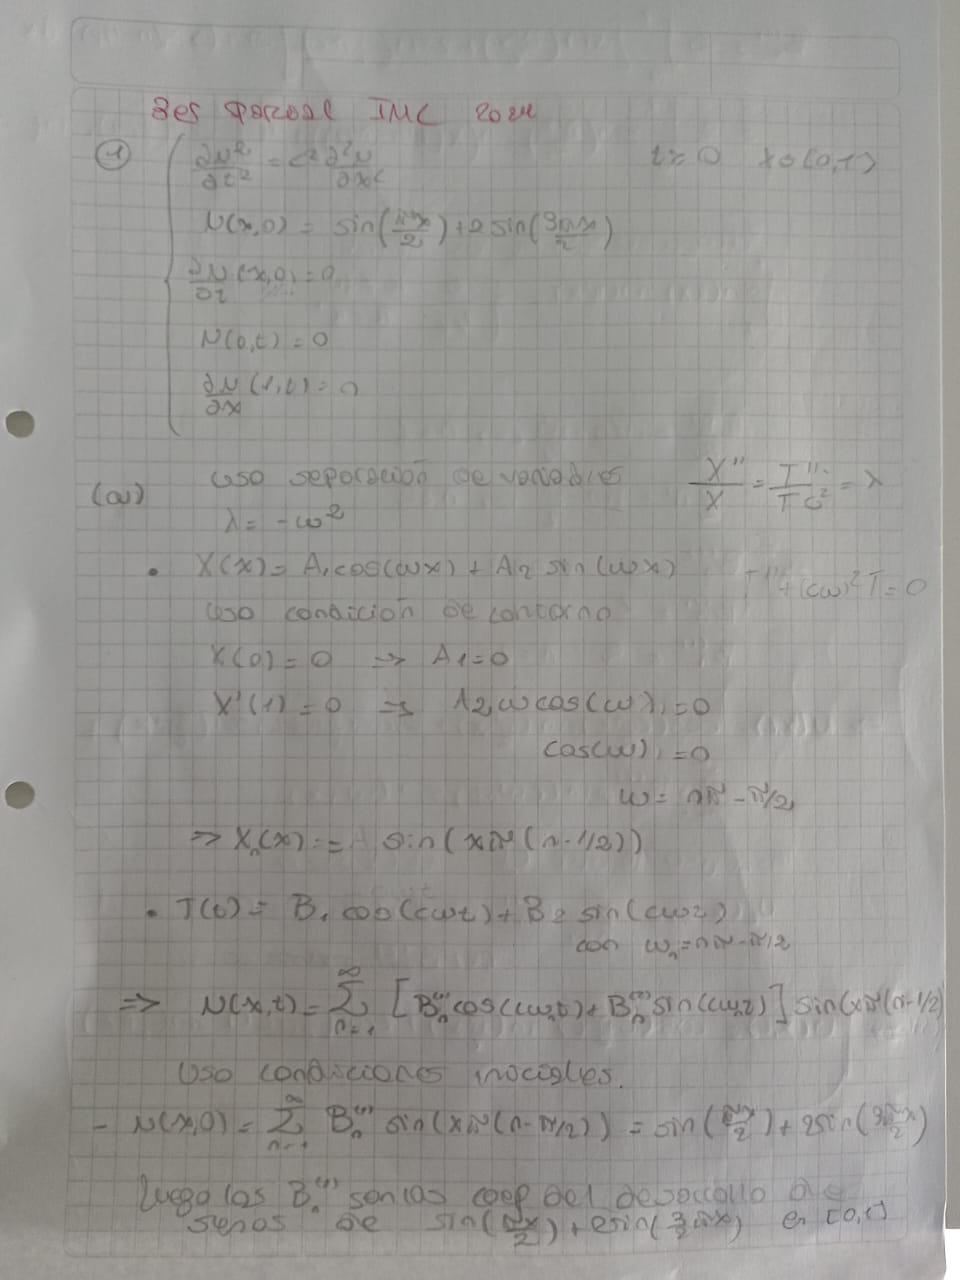 3er Parcial IMC 2024
① ∂u²/∂t² = c² ∂²u/∂x² t>0 x∈(0,1)
u(x,0) = sin(πx/2) + 2 sin(3πx/2)
∂u/∂t (x,0) = 0
u(0,t) = 0
∂u/∂x (1,t) = 0
(a) Uso separación de variables X''/X = T''/T c² = λ
λ = -ω²
• X(x) = A₁ cos(ωx) + A₂ sin(ωx) T'' + (cω)² T = 0
Uso condición de contorno
X(0) = 0 => A₁ = 0
X'(1) = 0 => A₂ ω cos(ω) = 0
cos(ω) = 0
ω = nπ - π/2
=> Xₙ(x) = sin(xπ(n-1/2))
• T(t) = B₁ cos(cωt) + B₂ sin(cωt)
con ωₙ = nπ - π/2
=> u(x,t) = Σ_{n=1}^∞ [Bₙ⁽¹⁾ cos(cωₙt) + Bₙ⁽²⁾ sin(cωₙt)] sin(xπ(n-1/2)
Uso condiciones iniciales.
- u(x,0) = Σ_{n=1}^∞ Bₙ⁽¹⁾ sin(xπ(n-π/2)) = sin(πx/2) + 2sin(3πx/2)
Luego los Bₙ⁽¹⁾ son los coef del desarrollo de
senos de sin(πx/2) + 2sin(3/2 πx) en [0,1]